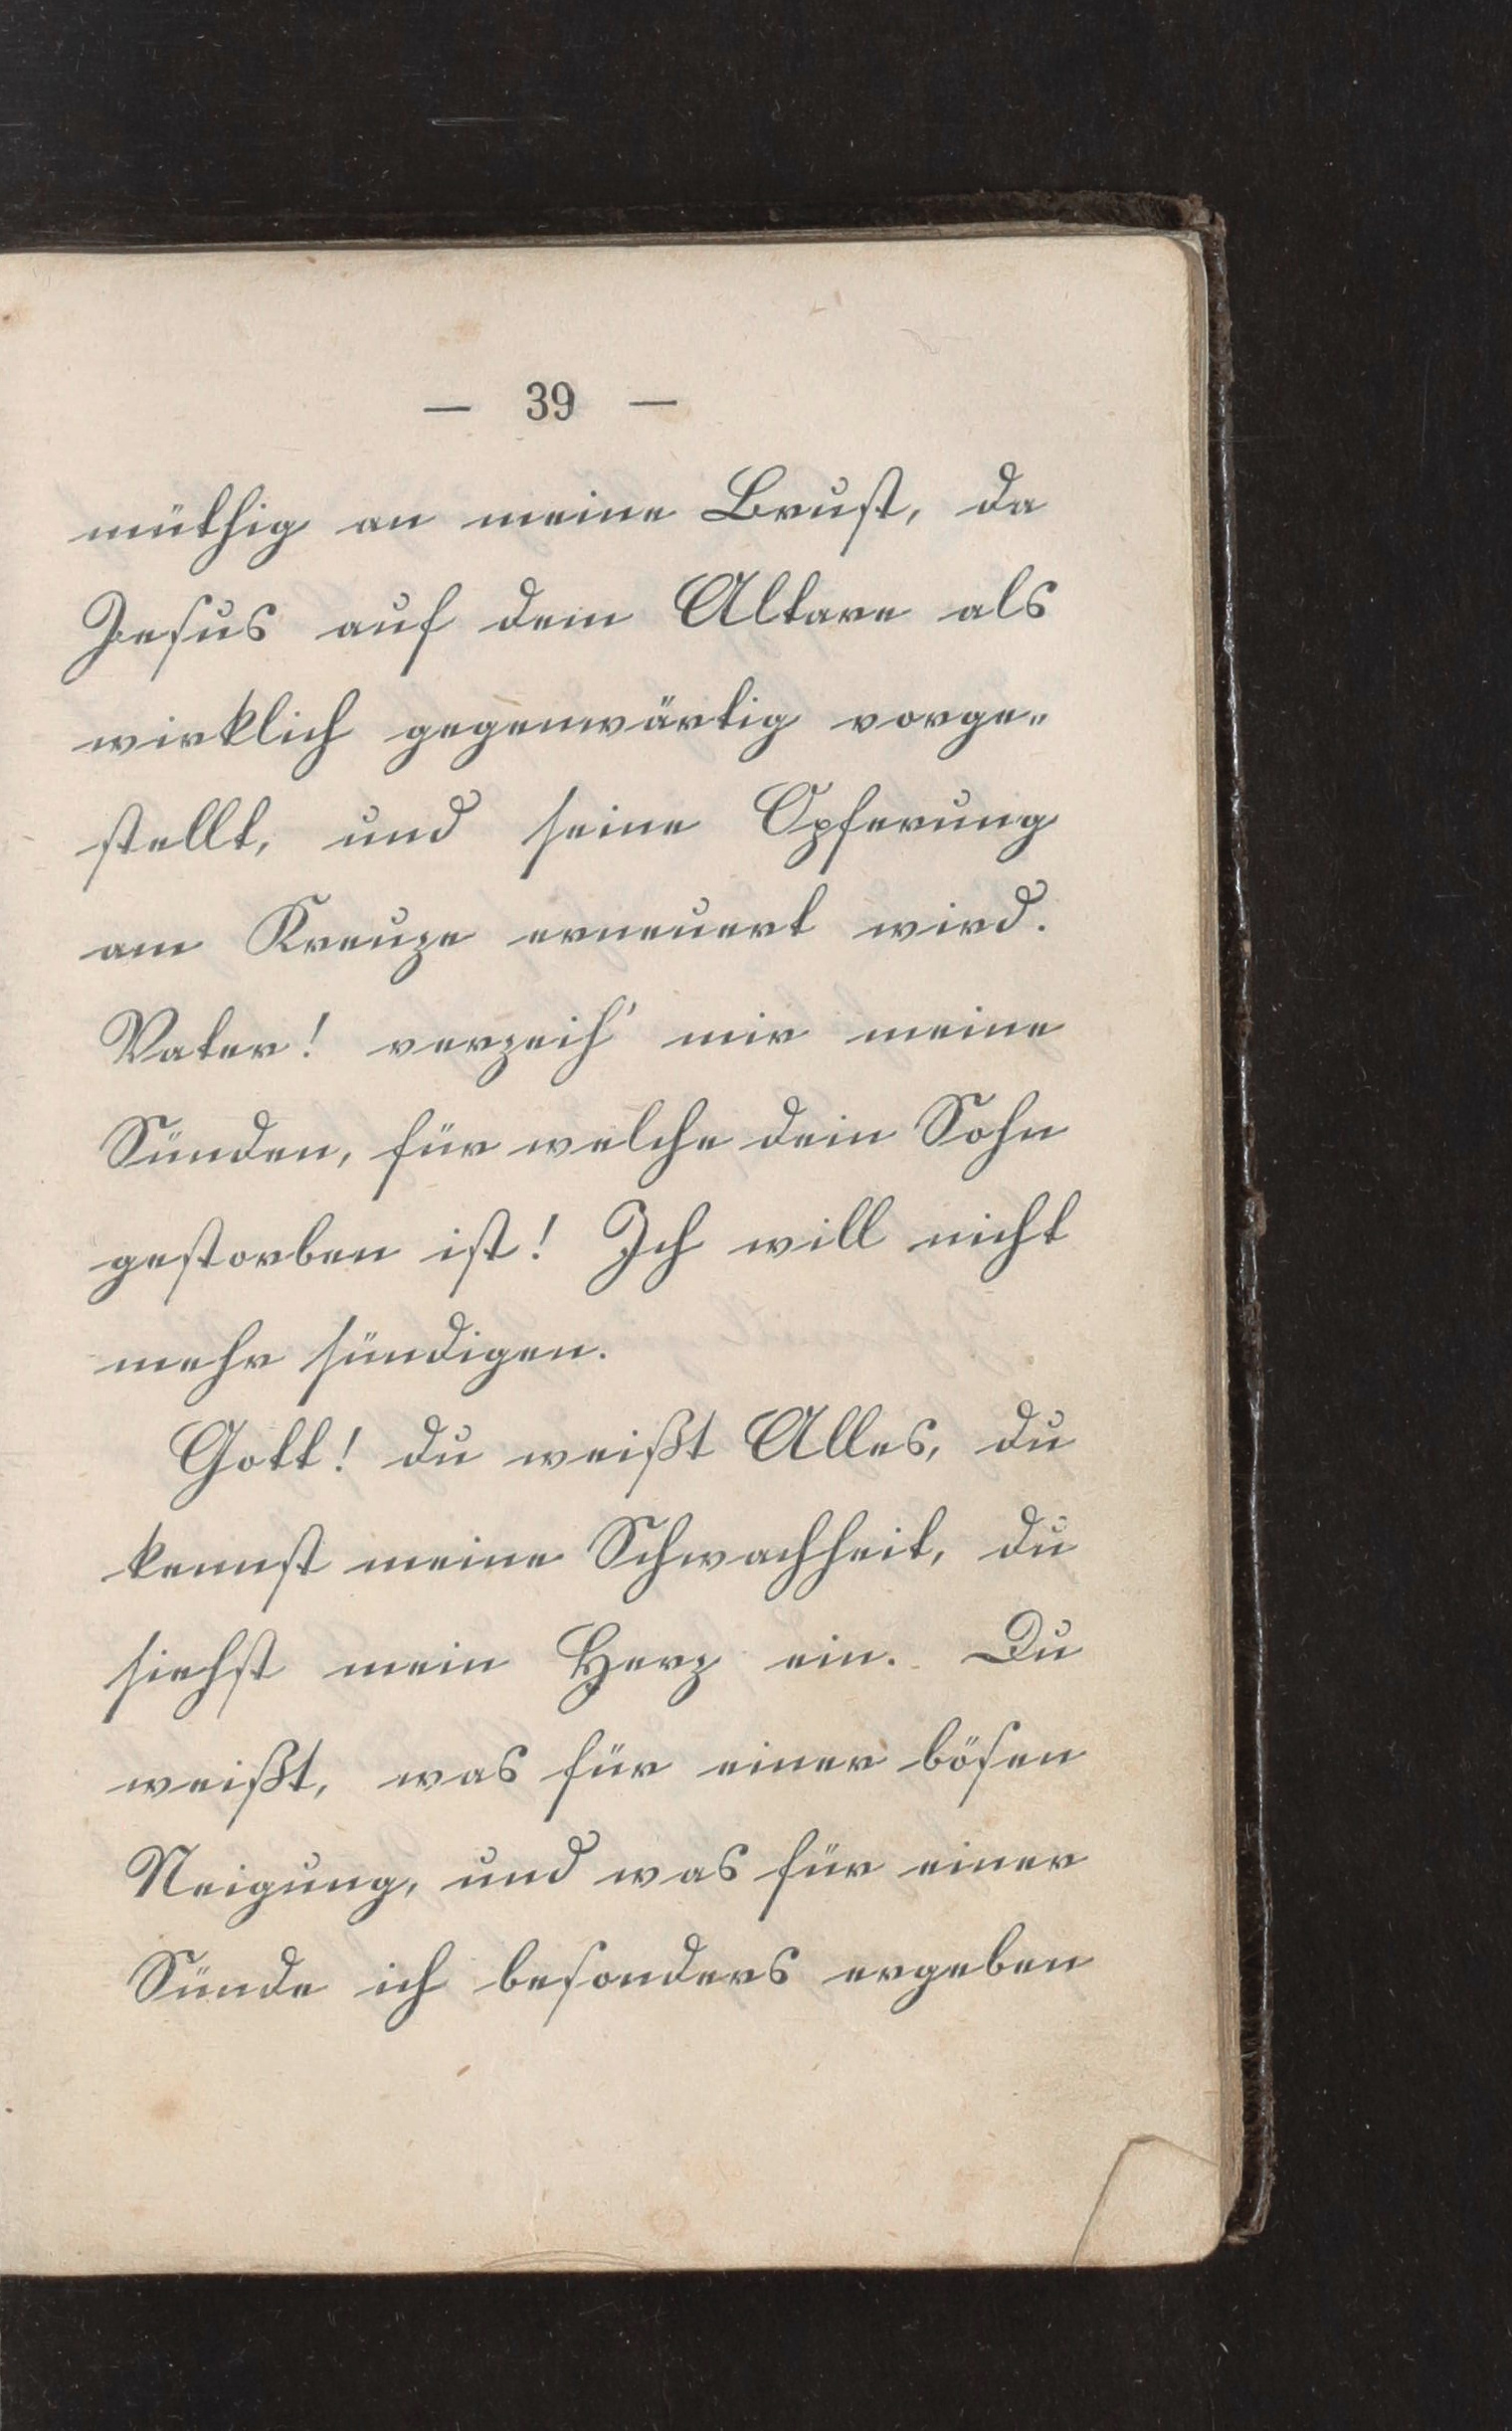 — 39 —
müthig an meine Brust, da
Jesus auf dem Altare als
wirklich gegenwärtig vorge-
stellt, und seine Opferung
am Kreuze erneuert wird.
Vater! verzeih' mir meine
Sünden, für welche dein Sohn
gestorben ist! Ich will nicht
mehr sündigen.
Gott! du weißt Alles, du
kennst meine Schwachheit, du
siehst mein Herz ein. Du
weißt, was für einer bösen
Neigung, und was für einer
Sünde ich besonders ergeben